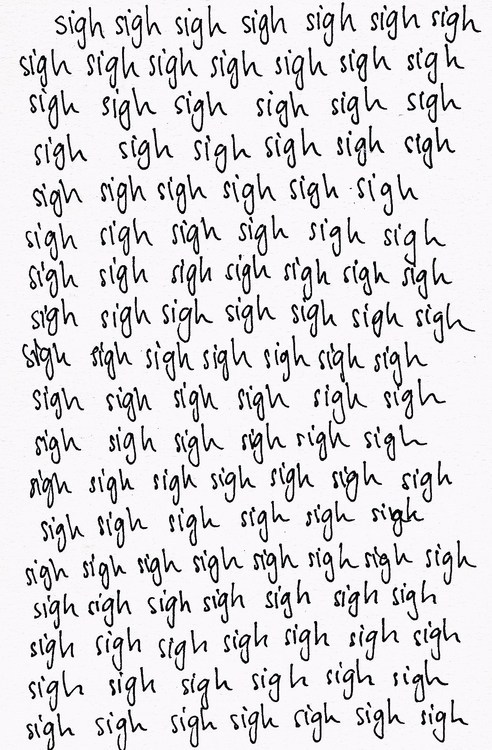 sigh sigh sigh sigh sigh sigh sigh
sigh sigh sigh sigh sigh sigh sigh
sigh sigh sigh sigh sigh sigh
sigh sigh sigh sigh sigh sigh
sigh sigh sigh sigh sigh sigh
sigh sigh sigh sigh sigh sigh
sigh sigh sigh sigh sigh sigh sigh
sigh sigh sigh sigh sigh sigh sigh
sigh sigh sigh sigh sigh sigh sigh
sigh sigh sigh sigh sigh sigh
sigh sigh sigh sigh sigh sigh
sigh sigh sigh sigh sigh sigh sigh
sigh sigh sigh sigh sigh sigh
sigh sigh sigh sigh sigh sigh sigh sigh
sigh sigh sigh sigh sigh sigh sigh
sigh sigh sigh sigh sigh sigh sigh
sigh sigh sigh sigh sigh sigh
sigh sigh sigh sigh sigh sigh sigh